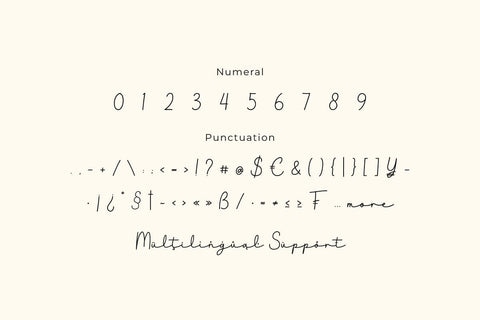 Numeral
0 1 2 3 4 5 6 7 8 9
Punctuation
. , - + / \ : ; < = > ! ? # @ $ € & ( ) { | } [ ] ¥ -
· ¡ ¿ ° § † - ‹ › « » ß / · = ≠ ≤ ≥ ₣ ... more
Multilingual Support